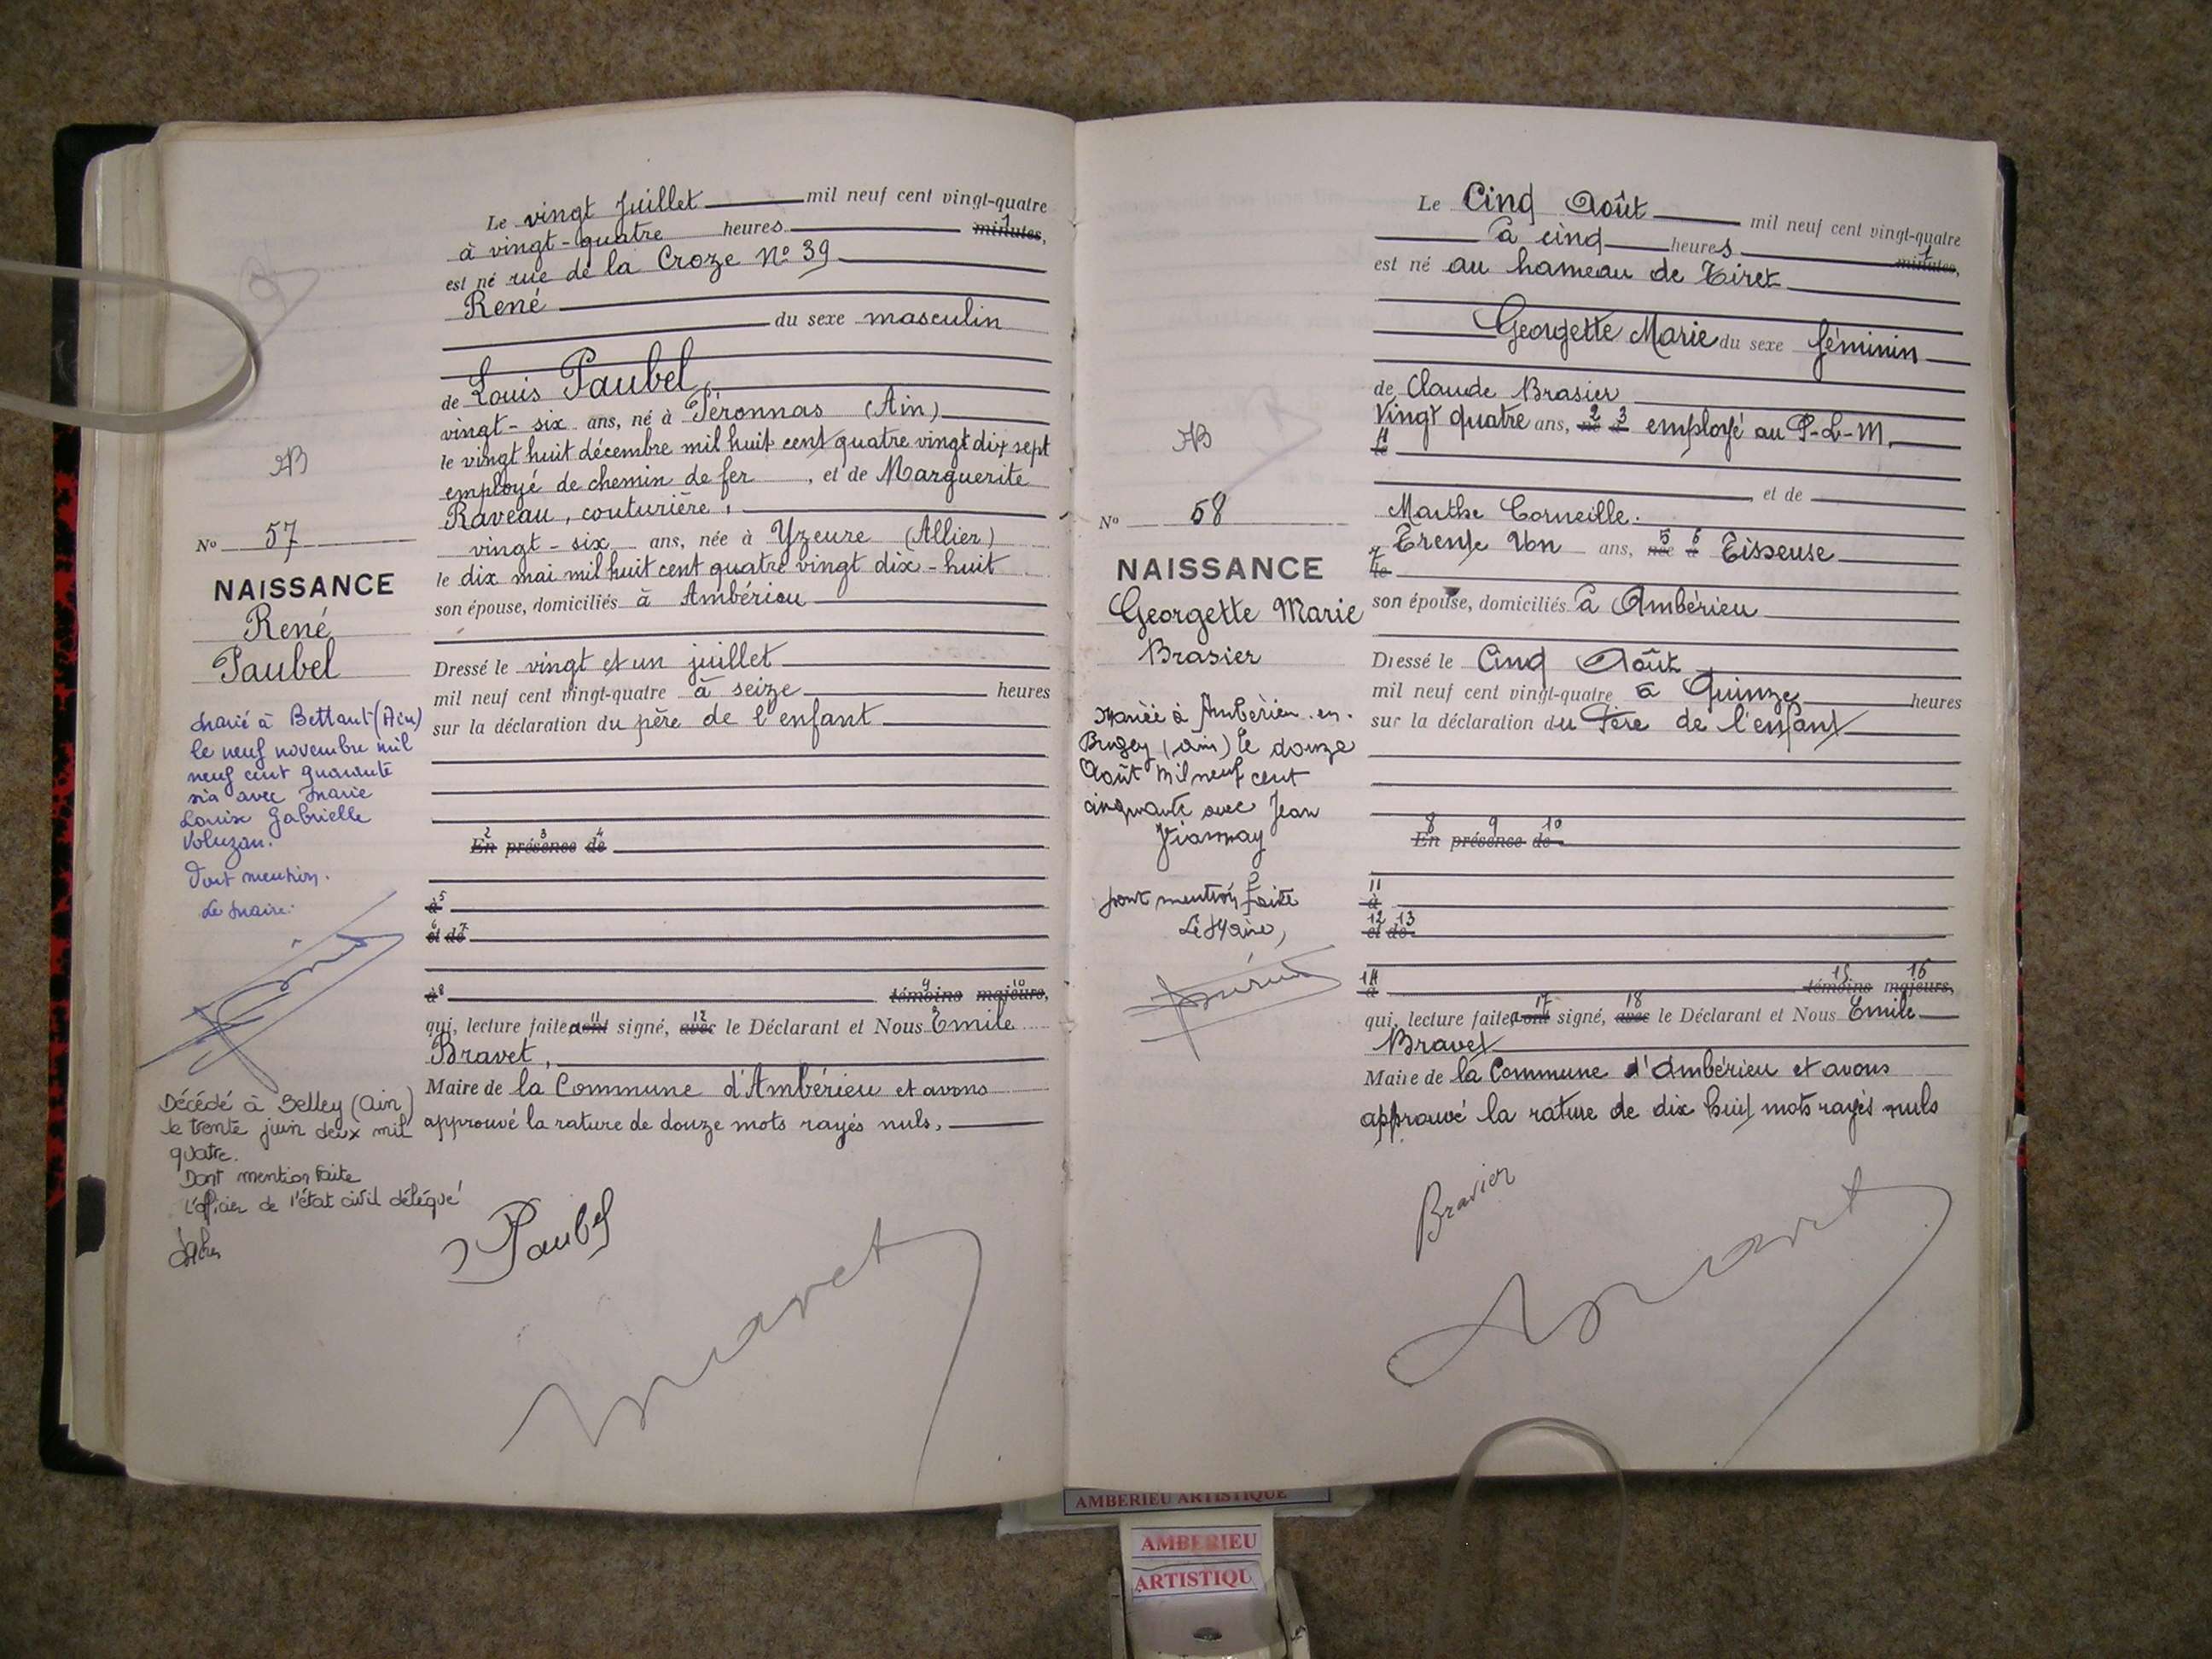 AB
N° 57
NAISSANCE
René
Paubel
Marié à Bettant (Ain)
le neuf novembre mil
neuf cent quarante
six avec Marie
Louise Gabrielle
Voluzan.
Dont mention.
Le Maire:
Décédé à Belley (Ain)
le trente juin deux mil
quatre.
Dont mention faite
L'officier de l'état civil délégué
Le vingt Juillet mil neuf cent vingt-quatre
à vingt-quatre heures minutes, 1
est né rue de la Croze N° 39
René
du sexe masculin
de Louis Paubel,
vingt-six ans, né à Péronnas (Ain)
le vingt huit décembre mil huit cent quatre vingt dix sept
employé de chemin de fer, et de Marguerite
Raveau, couturière,
vingt-six ans, née à Yzeure (Allier)
le dix mai mil huit cent quatre vingt dix-huit
son épouse, domiciliés à Ambérieu
Dressé le vingt et un juillet
mil neuf cent vingt-quatre à seize heures
sur la déclaration du père de l'enfant
2 3 4
En présence de
à 5
6 et de 7
à 8 9 témoins 10 majeurs,
qui, lecture faite, 11 ont signé, 12 avec le Déclarant et Nous Emile
Bravet,
Maire de la Commune d'Ambérieu et avons
approuvé la rature de douze mots rayés nuls,
Paubel
Bravet
AB
N° 58
NAISSANCE
Georgette Marie
Brasier
Mariée à Ambérieu-en-
Bugey (Ain) le douze
Août mil neuf cent
cinquante avec Jean
dont mention faite
Le Maire,
Le Cinq Août mil neuf cent vingt-quatre
à cinq heures minutes, 1
est né au hameau de Tiret
Georgette Marie du sexe féminin
de Claude Brasier
Vingt quatre ans, 2 né 3 à employé au P-L-M,
4 le
et de
Marthe Corneille.
Trente Un ans, 5 née 6 à Tisseuse
7 le
son épouse, domiciliés à Ambérieu
Dressé le Cinq Août
mil neuf cent vingt-quatre à Quinze heures
sur la déclaration du Père de l'enfant
8 9 10
En présence de
11
à
12 13
et de
14 15 16
à témoins majeurs,
qui, lecture faite, 17 ont signé, 18 avec le Déclarant et Nous Emile
Bravet
Maire de la Commune d'Ambérieu et avons
approuvé la rature de dix huit mots rayés nuls
Brasier
Bravet
AMBERIEU ARTISTIQUE
AMBERIEU
ARTISTIQU